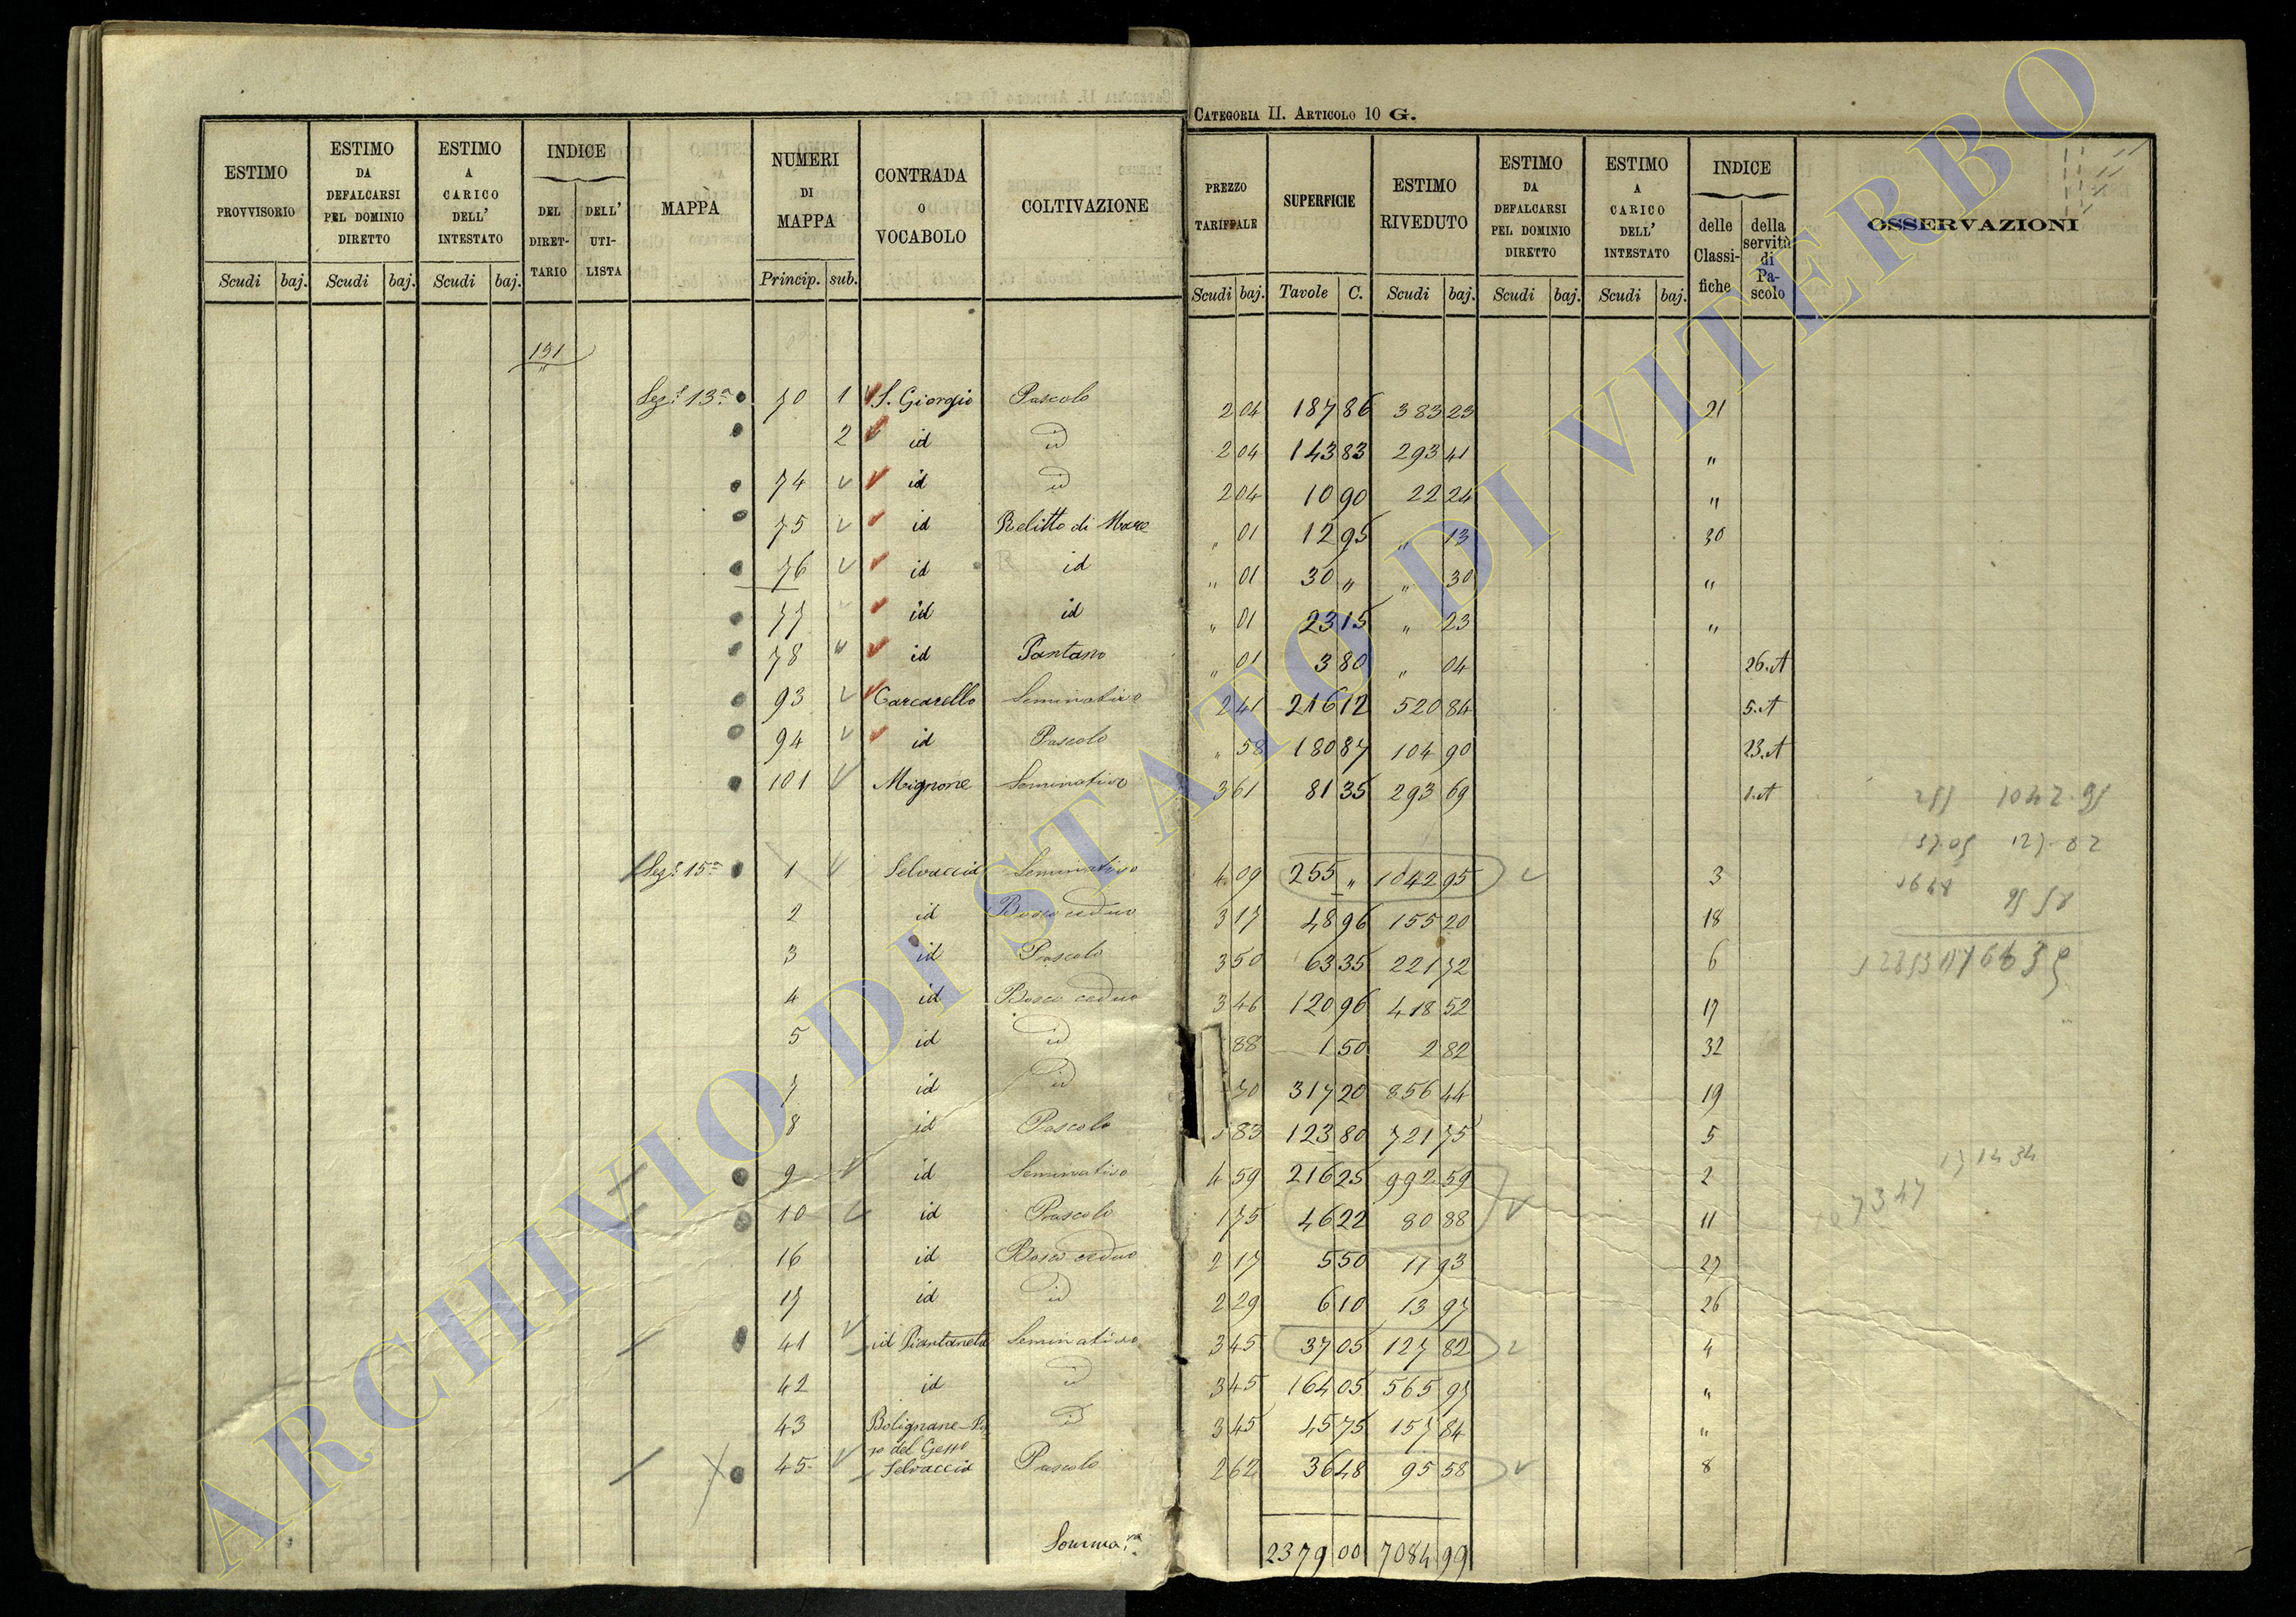 CATEGORIA II. ARTICOLO 10 G.
ESTIMO PROVVISORIO Scudi baj.
ESTIMO DA DEFALCARSI PEL DOMINIO DIRETTO Scudi baj.
ESTIMO A CARICO DELL' INTESTATO Scudi baj.
INDICE DEL DIRETTARIO DELL' UTILISTA
MAPPA
NUMERI DI MAPPA Princip. sub.
CONTRADA O VOCABOLO
COLTIVAZIONE
PREZZO TARIFFALE Scudi baj.
SUPERFICIE Tavole C.
ESTIMO RIVEDUTO Scudi baj.
ESTIMO DA DEFALCARSI PEL DOMINIO DIRETTO Scudi baj.
ESTIMO A CARICO DELL' INTESTATO Scudi baj.
INDICE delle Classifiche della servitù di Pascolo
OSSERVAZIONI
131
Sez.e 13a 70 1 S. Giorgio Pascolo 2 04 187 86 383 23 21
2 id id 2 04 143 83 293 41 "
74 id id 2 04 10 90 22 24 "
75 id Relitto di Mare " 01 12 95 " 13 30
76 id id " 01 30 " " 30 "
77 id id " 01 23 15 " 23 "
78 id Pantano " 01 3 80 " 04 26.A
93 Carcarello Seminativo 2 41 216 12 520 84 5.A
94 id Pascolo " 58 180 87 104 90 23.A
101 Mignone Seminativo 3 61 81 35 293 69 1.A
Sez.e 15a 1 Selvaccia Seminativo 4 09 255 " 1042 95 3
2 id Bosco ceduo 3 17 48 96 155 20 18
3 id Pascolo 3 50 63 35 221 72 6
4 id Bosco ceduo 3 46 120 96 418 52 17
5 id id 88 1 50 2 82 32
7 id id 70 317 20 856 44 19
8 id Pascolo 5 83 123 80 721 75 5
9 id Seminativo 4 59 216 25 992 59 2
10 id Pascolo 1 75 46 22 80 88 11
16 id Bosco ceduo 2 17 5 50 11 93 27
17 id id 2 29 6 10 13 97 26
41 id Piantaneta Seminativo 3 45 37 05 127 82 4
42 id id 3 45 164 05 565 97 "
43 Bolignane del Gesso id 3 45 45 75 157 84 "
45 Selvaccia Pascolo 2 62 36 48 95 58 8
Somma 2379 00 7084 99
ARCHIVIO DI STATO DI VITERBO